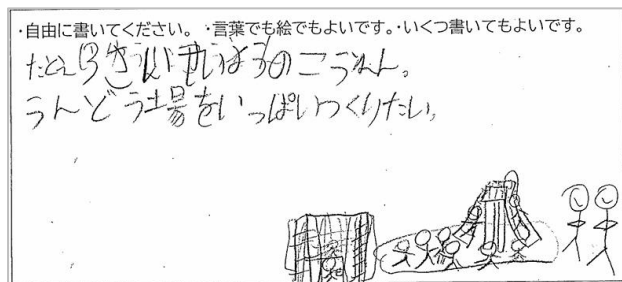 ・自由に書いてください。 ・言葉でも絵でもよいです。・いくつ書いてもよいです。
たとえ のこうえん。
うんどう場をいっぱいつくりたい。